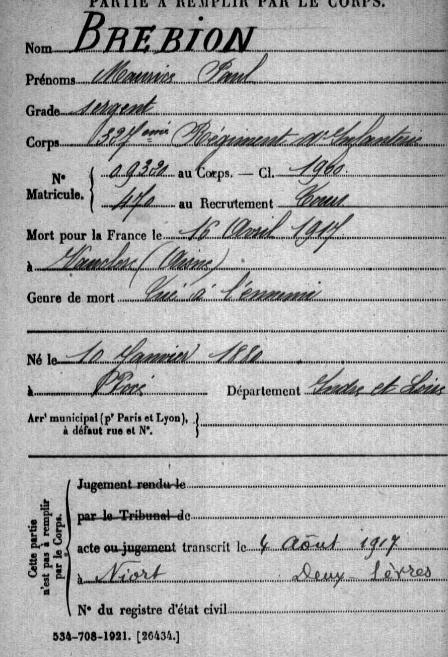 PARTIE À REMPLIR PAR LE CORPS.
Nom BREBION
Prénoms Maurice Paul
Grade sergent
Corps 327ème Régiment d'Infanterie
N° Matricule. { 09320 au Corps. — Cl. 1900
470 au Recrutement Tours
Mort pour la France le 16 Avril 1917
à (Aisne)
Genre de mort Tué à l'ennemi
Né le 10 Janvier 1880
à Département Indre et Loire
Arr^t municipal (p^r Paris et Lyon), à défaut rue et N°. }
Cette partie n'est pas à remplir par le Corps.
Jugement rendu le
par le Tribunal de
acte ou jugement transcrit le 4 Août 1917
à Niort Deux Sèvres
N° du registre d'état civil
534-708-1921. [26434.]